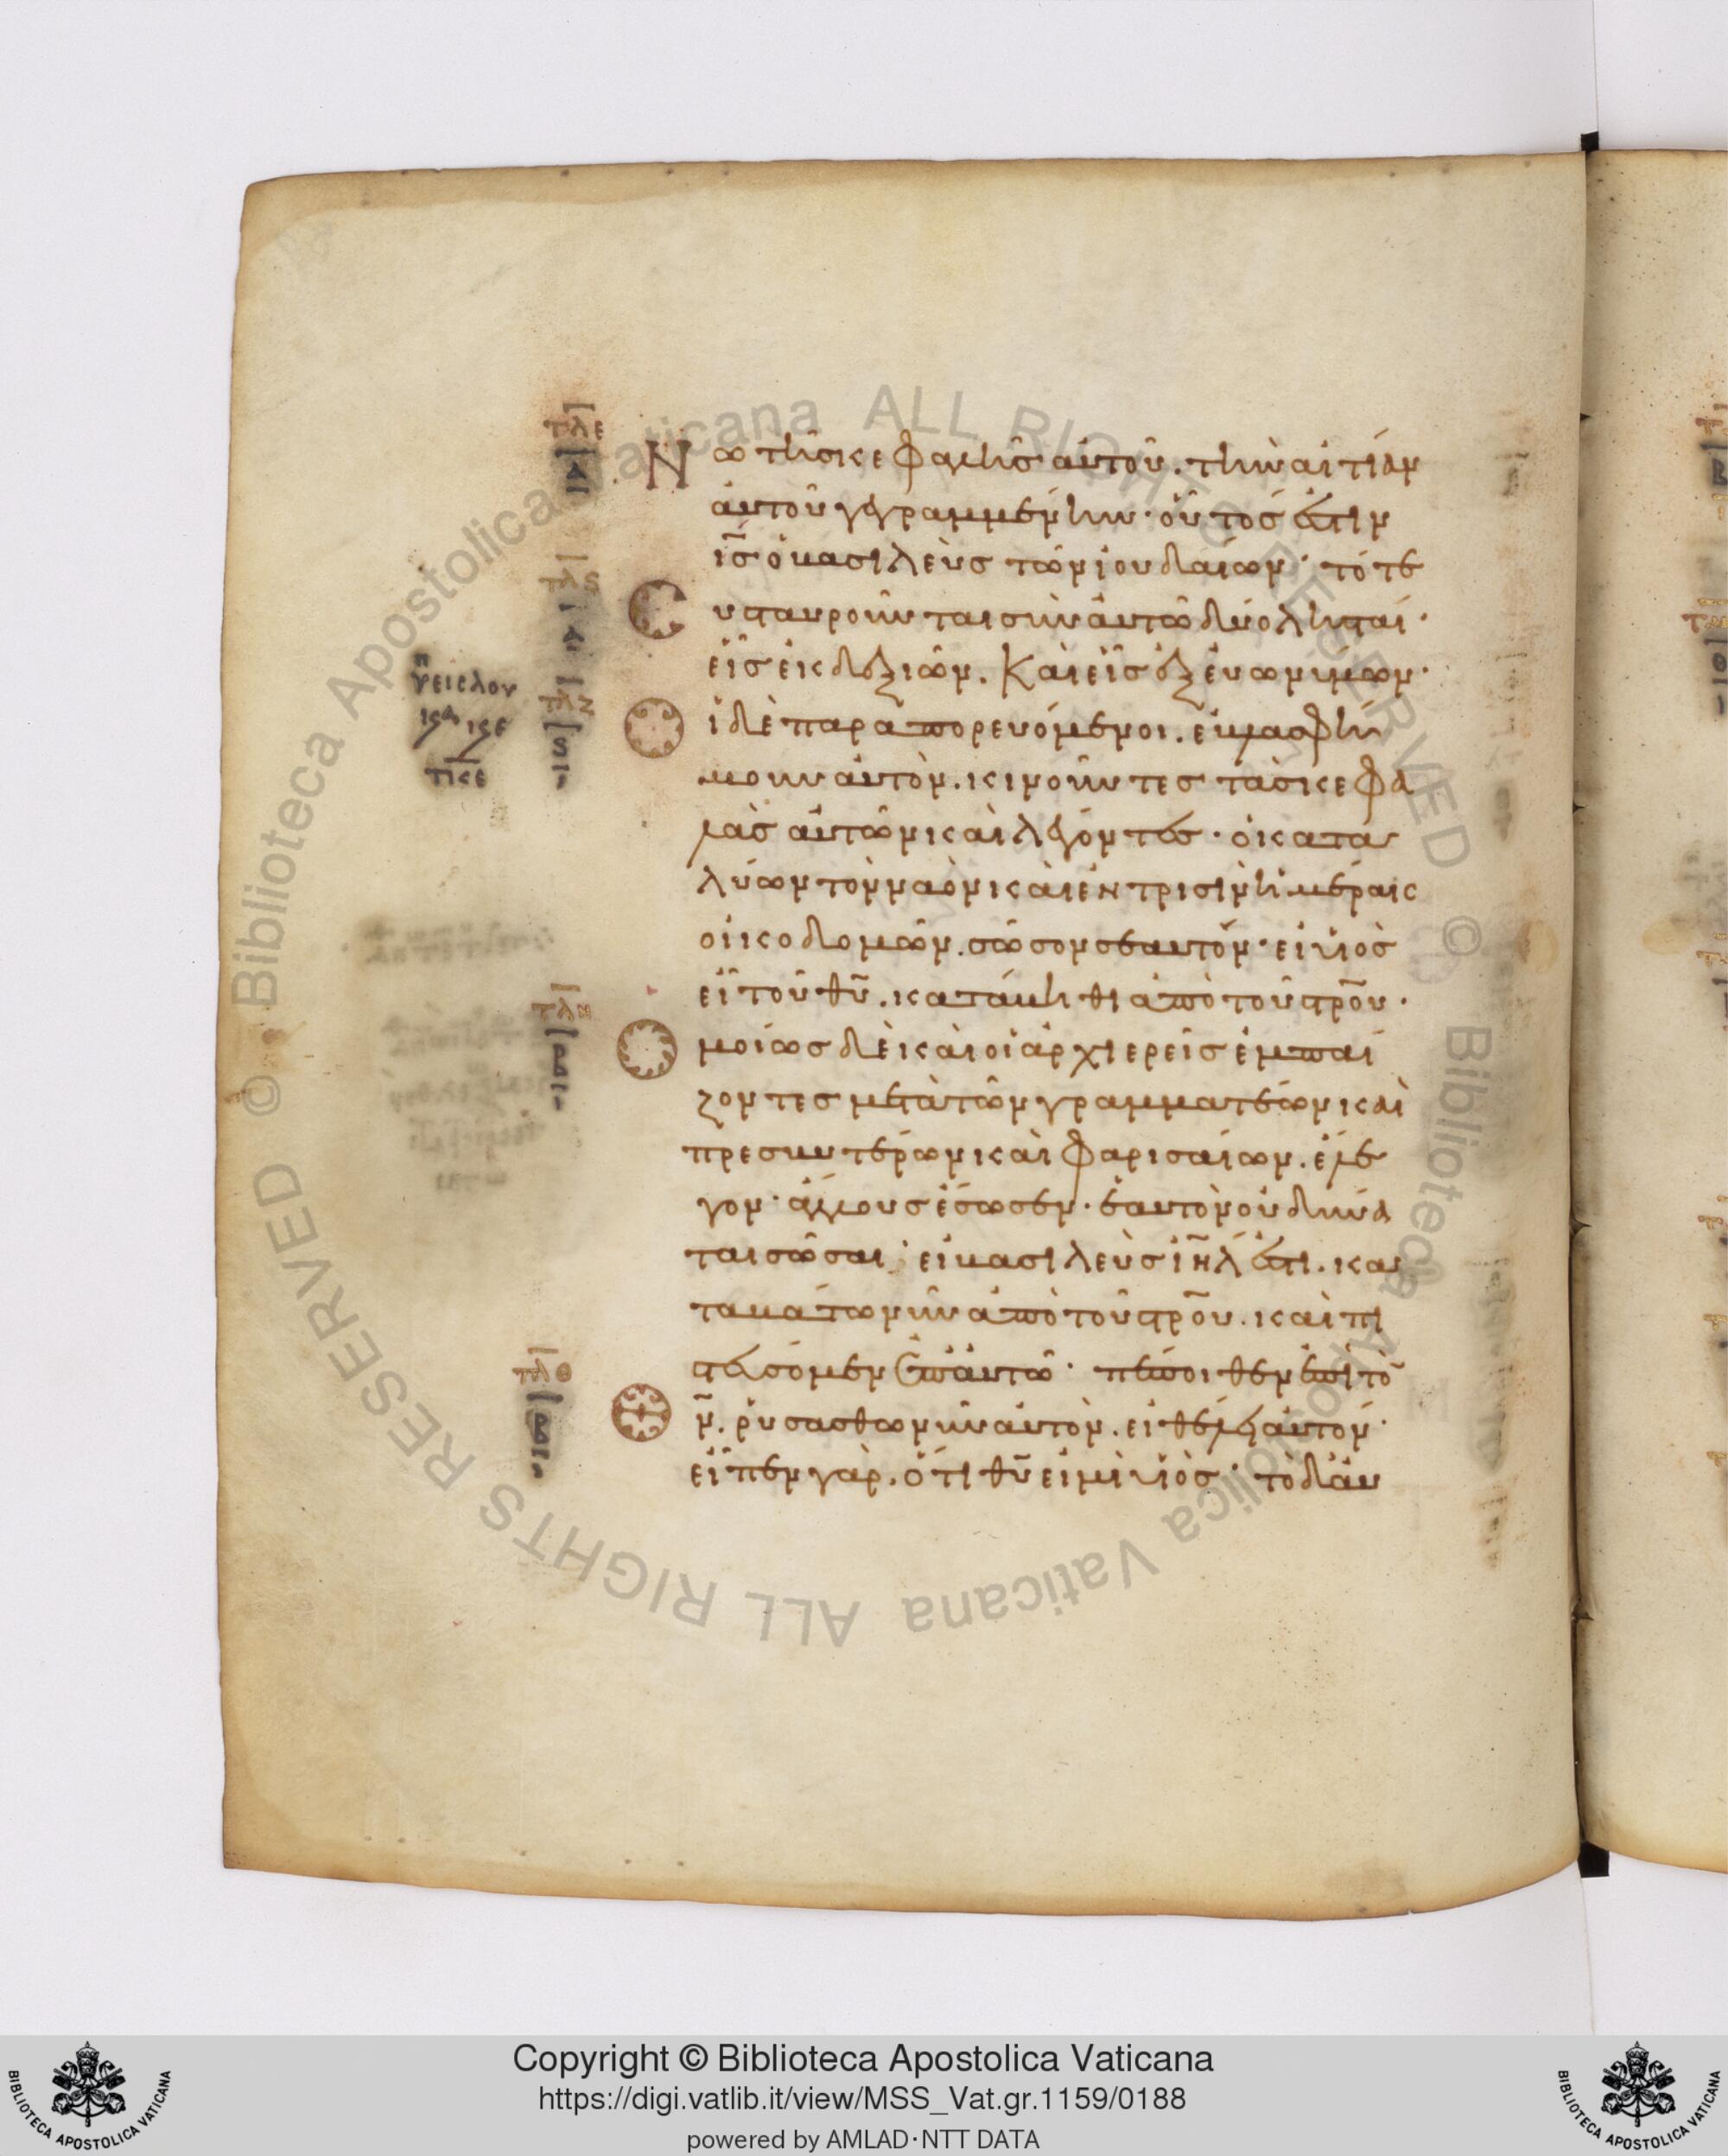 τλε
Α
Νω τῆς κεφαλῆς αὐτοῦ. τὴν αἰτίαν
αὐτοῦ γεγραμμένην· οὗτός ἐστιν
ι̅ς̅ ὁ βασιλεὺς τῶν ἰουδαίων· τότε
τλϛ
Α
Cυσταυροῦνται σὺν αὐτῶ δύο λησταί·
εἷς ἐκ δεξιῶν. Καὶ εἷς ἐξ εὐωνύμων·
τλζ
ϛ
Οἱ δὲ παραπορευόμενοι. ἐβλασφή
μουν αὐτὸν. κινοῦντες τὰς κεφα
λὰς αὐτῶν καὶ λέγοντες· ὁ κατα
λύων τὸν ναὸν καὶ ἐν τρισὶν ἡμέραις
οἰκοδομῶν. σῶσον σεαυτόν· εἰ υἱὸς
εἶ τοῦ θ̅υ̅. κατάβηθι ἀπὸ τοῦ σ̅ρ̅ο̅υ·
τλη
β
Ομοίως δὲ καὶ οἱ ἀρχιερεῖς ἐμπαί
ζοντες μετὰ τῶν γραμματέων καὶ
πρεσβυτέρων καὶ φαρισαίων. ἔλε
γον· ἄλλους ἔσωσεν· ἑαυτὸν οὐ δύνα
ται σῶσαι· εἰ βασιλεὺς ι̅η̅λ̅ ἐστι. κα
ταβάτω νῦν ἀπὸ τοῦ σ̅ρ̅ο̅υ. καὶ πι
στεύσομεν ἐπ' αὐτῶ· πέποιθεν ἐπὶ τὸ
τλθ
β
Θ̅ν̅. ῥυσάσθω νῦν αὐτὸν. εἰ θέλει αὐτόν·
εἶπεν γὰρ. ὅτι θ̅υ̅ εἰμὶ υἱὸς· τὸ δ' αὐ
Copyright © Biblioteca Apostolica Vaticana
https://digi.vatlib.it/view/MSS_Vat.gr.1159/0188
powered by AMLAD·NTT DATA
BIBLIOTECA APOSTOLICA VATICANA
BIBLIOTECA APOSTOLICA VATICANA
© Biblioteca Apostolica Vaticana ALL RIGHTS RESERVED © Biblioteca Apostolica Vaticana ALL RIGHTS RESERVED